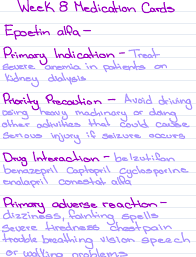 Week 8 Medication Cards
Epoetin alfa -
Primary Indication - Treat
severe anemia in patients on
kidney dialysis
Priority Precaution - Avoid driving
using heavy machinery or doing
other activities that could cause
serious injury if seizure occurs
Drug Interaction - belzutifan
benazepril captopril cyclosporine
enalapril conestat alfa
Primary adverse reaction -
dizziness, fainting spells
severe tiredness chest pain
trouble breathing vision speech
or walking problems